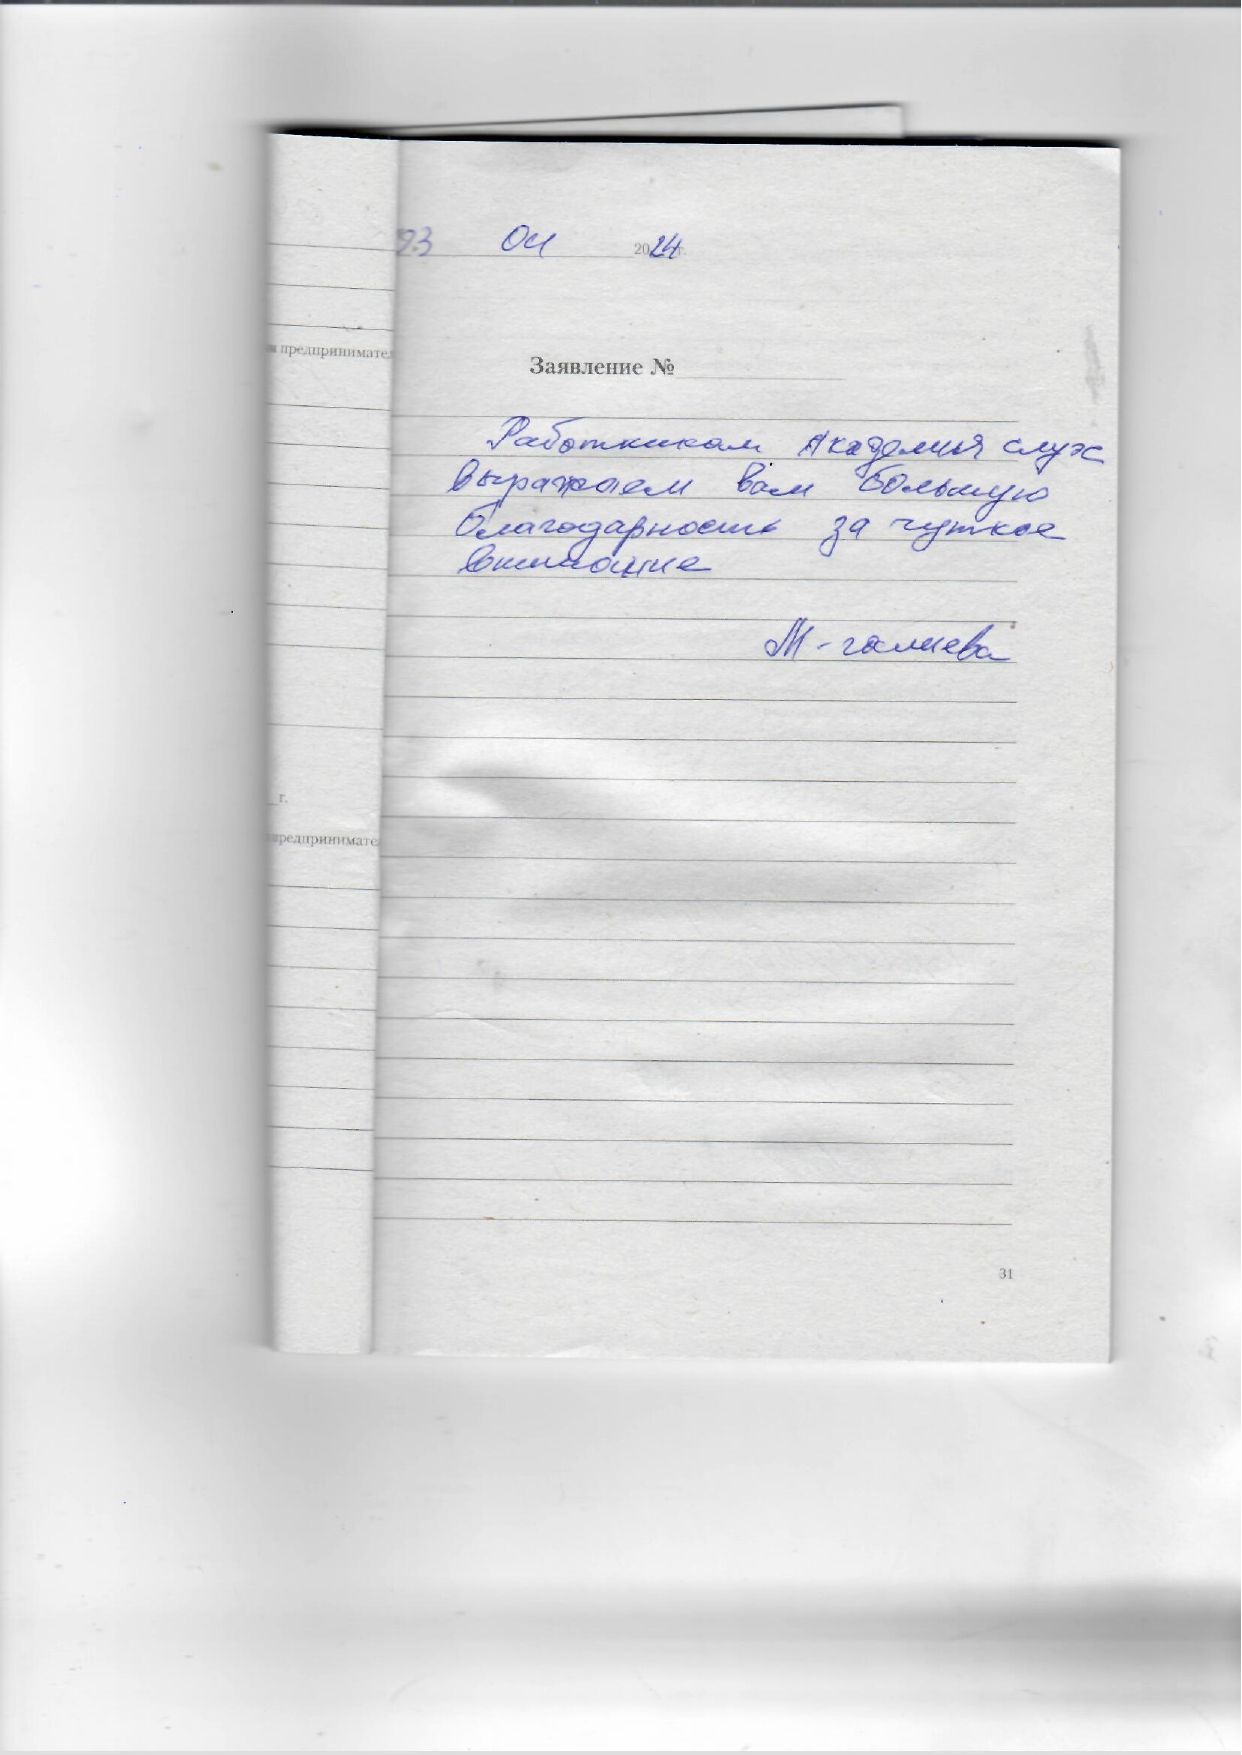 23 04 2024 г.
я предпринимател
Заявление №
Работникам Академия слух
выражаем вам большую
благодарность за чуткое
внимание
М-галиева
г.
предпринимате
31